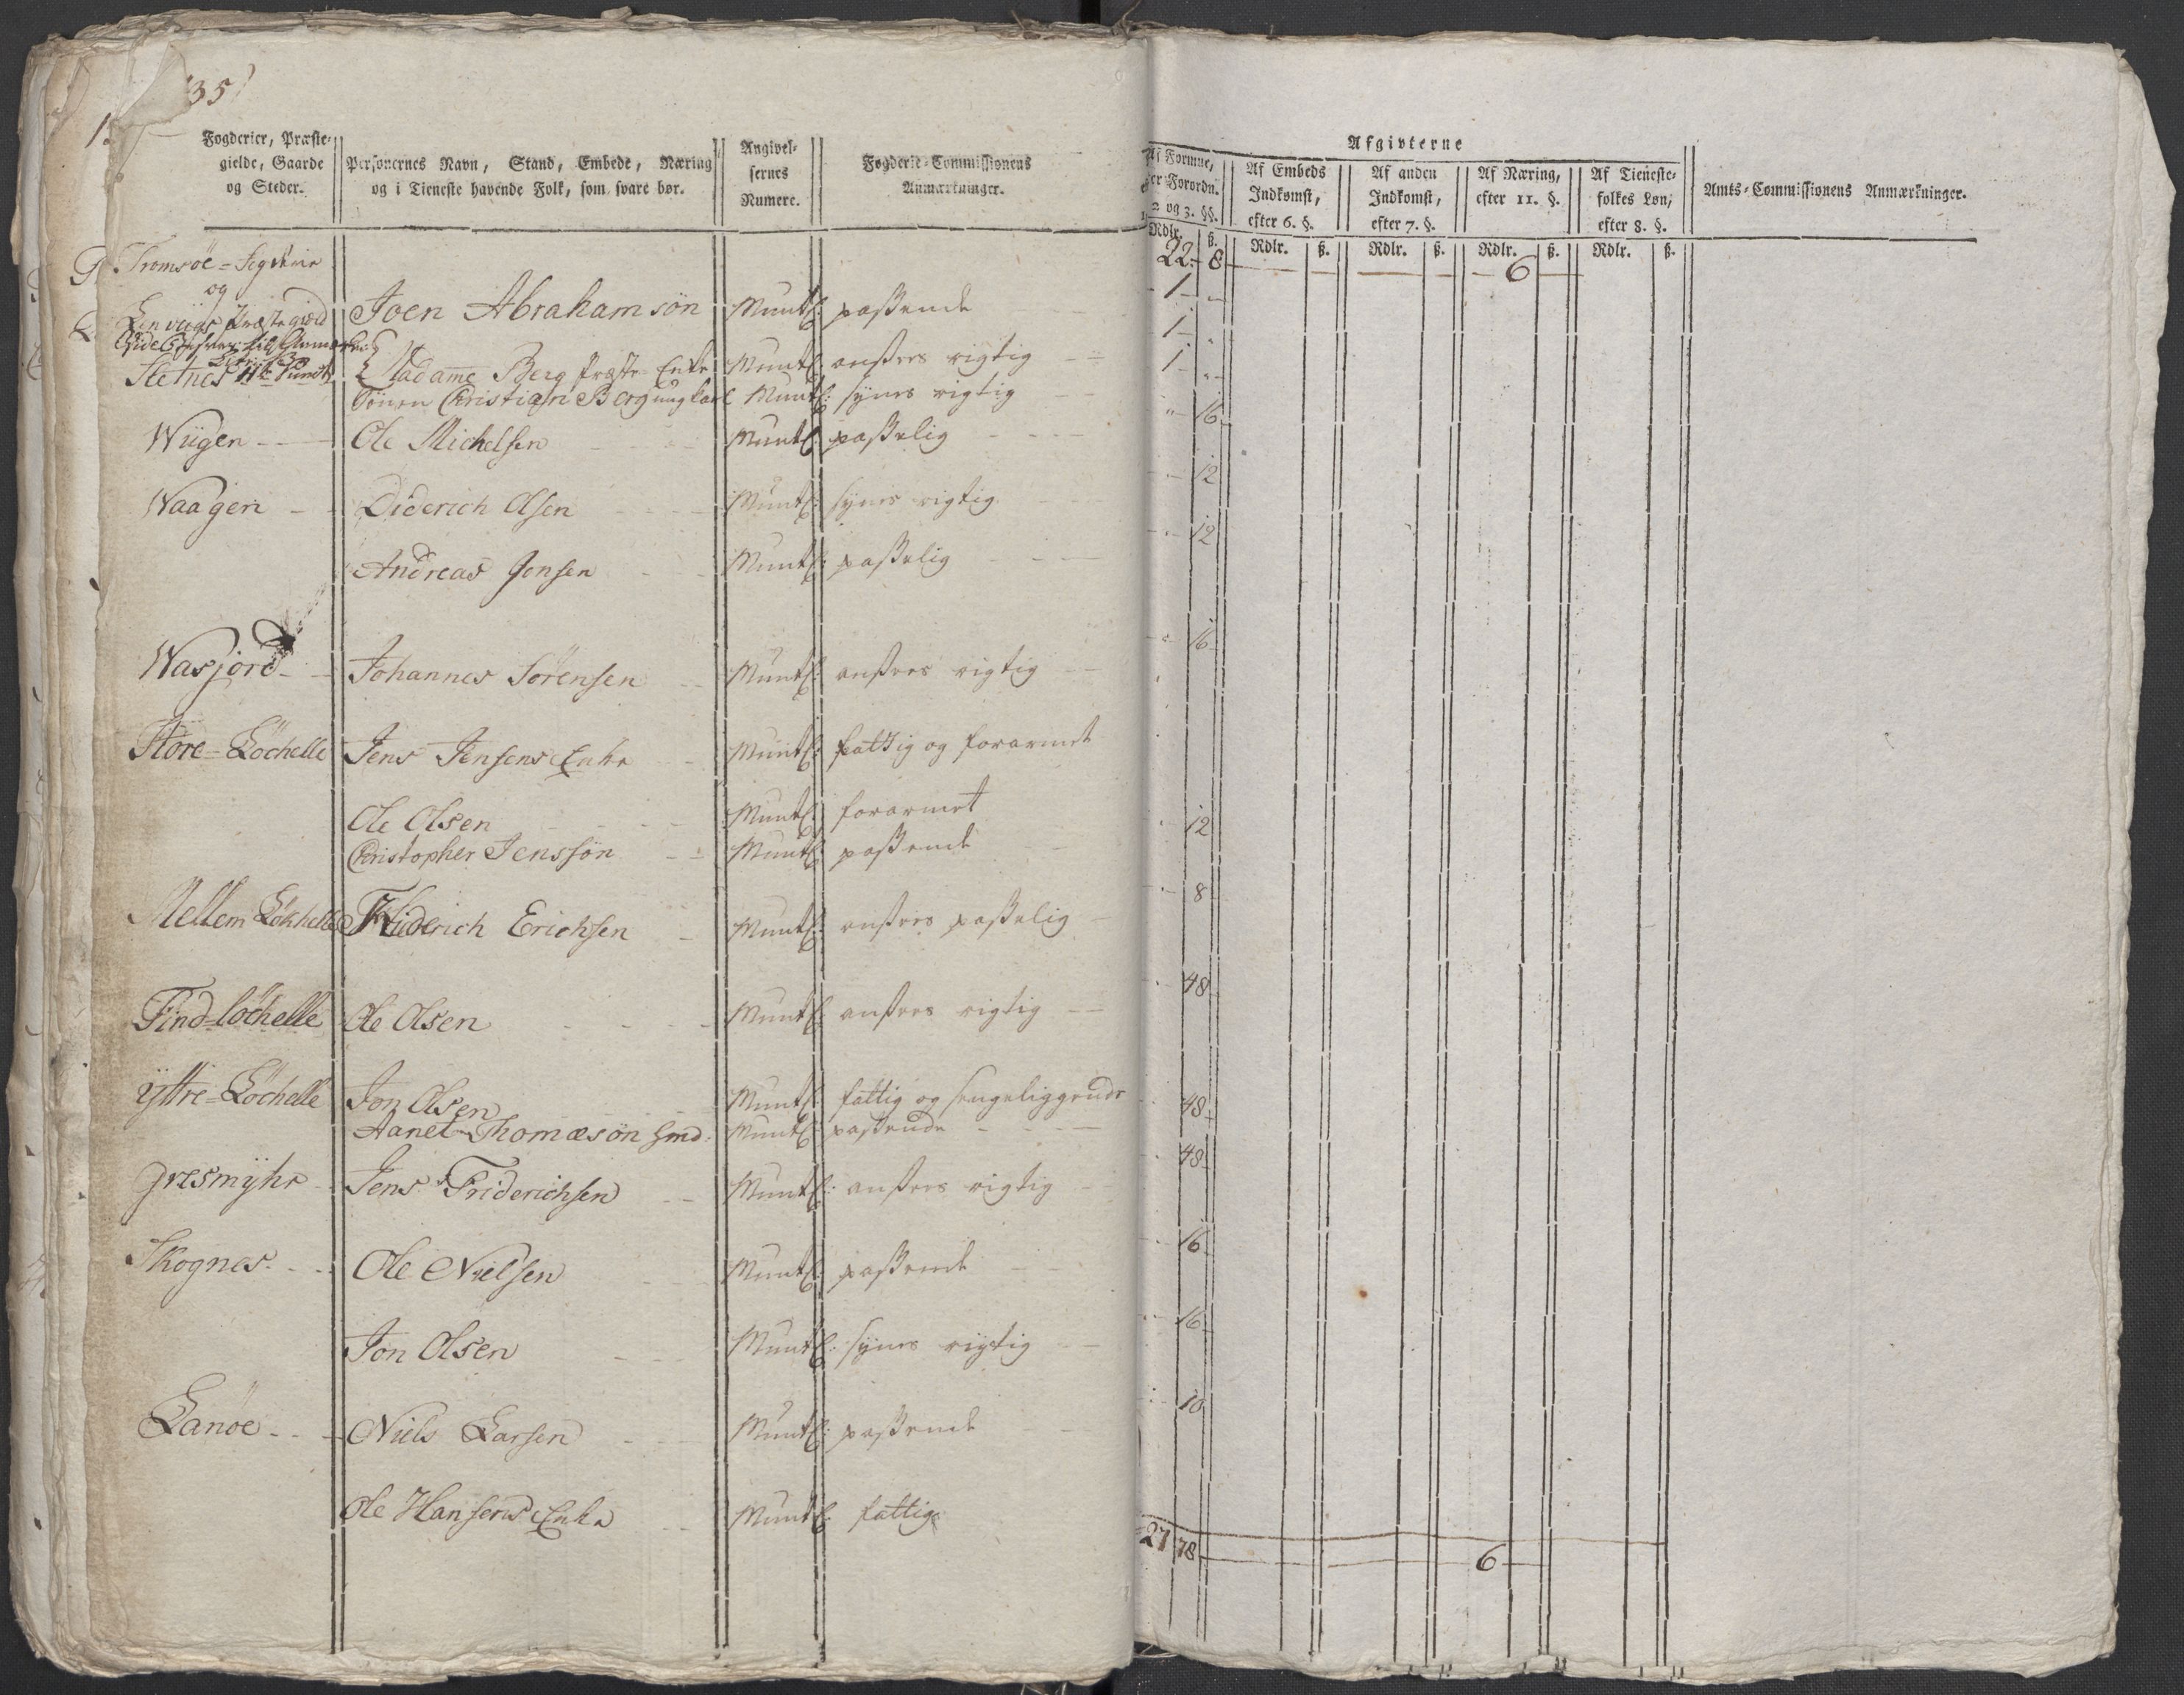 35
Fogderier, Præste-
gielde, Gaarde
og Steder.
Personernes Navn, Stand, Embede, Næring
og i Tieneste havende Folk, som svare bør.
Angivel-
sernes
Numere.
Fogderie-Commissionens
Anmærkninger.
Tromsöe =
og
Lenvigs Præstegield
Joen Abrahamsön Muntl: paßende
Madame Berg Præste Enke Muntl: ansees rigtig
Sönen Christian Berg ungkarl Muntl: synes rigtig
Wügen Ole Michelsen Muntl: paßelig
Waagen Diderich Olsen Muntl: synes rigtig
Andreas Jonsen Muntl: paßelig
Wasjord Johannes Sörensen Muntl: ansees rigtig
Store-Löchelle Jens Jensens Enke Muntl: fattig og forarmet
Ole Olsen Muntl: forarmet
Christopher Jenssön Muntl: paßende
Mellem Löchelle Friderich Erichsen Muntl: ansees paßelig
Find-löchelle Ole Olsen Muntl: ansees rigtig
ÿttre-Löchelle Jon Olsen Muntl: fattig og sengeliggende
Aanet Thomæsön Muntl: paßende
Gresmÿhr Jens Friderichsen Muntl: ansees rigtig
Skognes Ole Nielsen Muntl: paßende
Jon Olsen Muntl: synes rigtig
Lanöe Niels Larsen Muntl: paßende
Ole Hansens Enke Muntl: fattig
Afgivterne
Af Formue,
efter Forordn.
1, 2 og 3. §§.
Af Embeds
Indkomst,
efter 6. §.
Af anden
Indkomst,
efter 7. §.
Af Næring,
efter 11. §.
Af Tieneste-
folkes Løn,
efter 8. §.
Amts-Commissionens Anmærkninger.
Rdlr. ß. Rdlr. ß. Rdlr. ß. Rdlr. ß. Rdlr. ß.
22 8 6
1
1
1
16
12
12
16
12
8
48
48
48
16
16
10
27 78 6